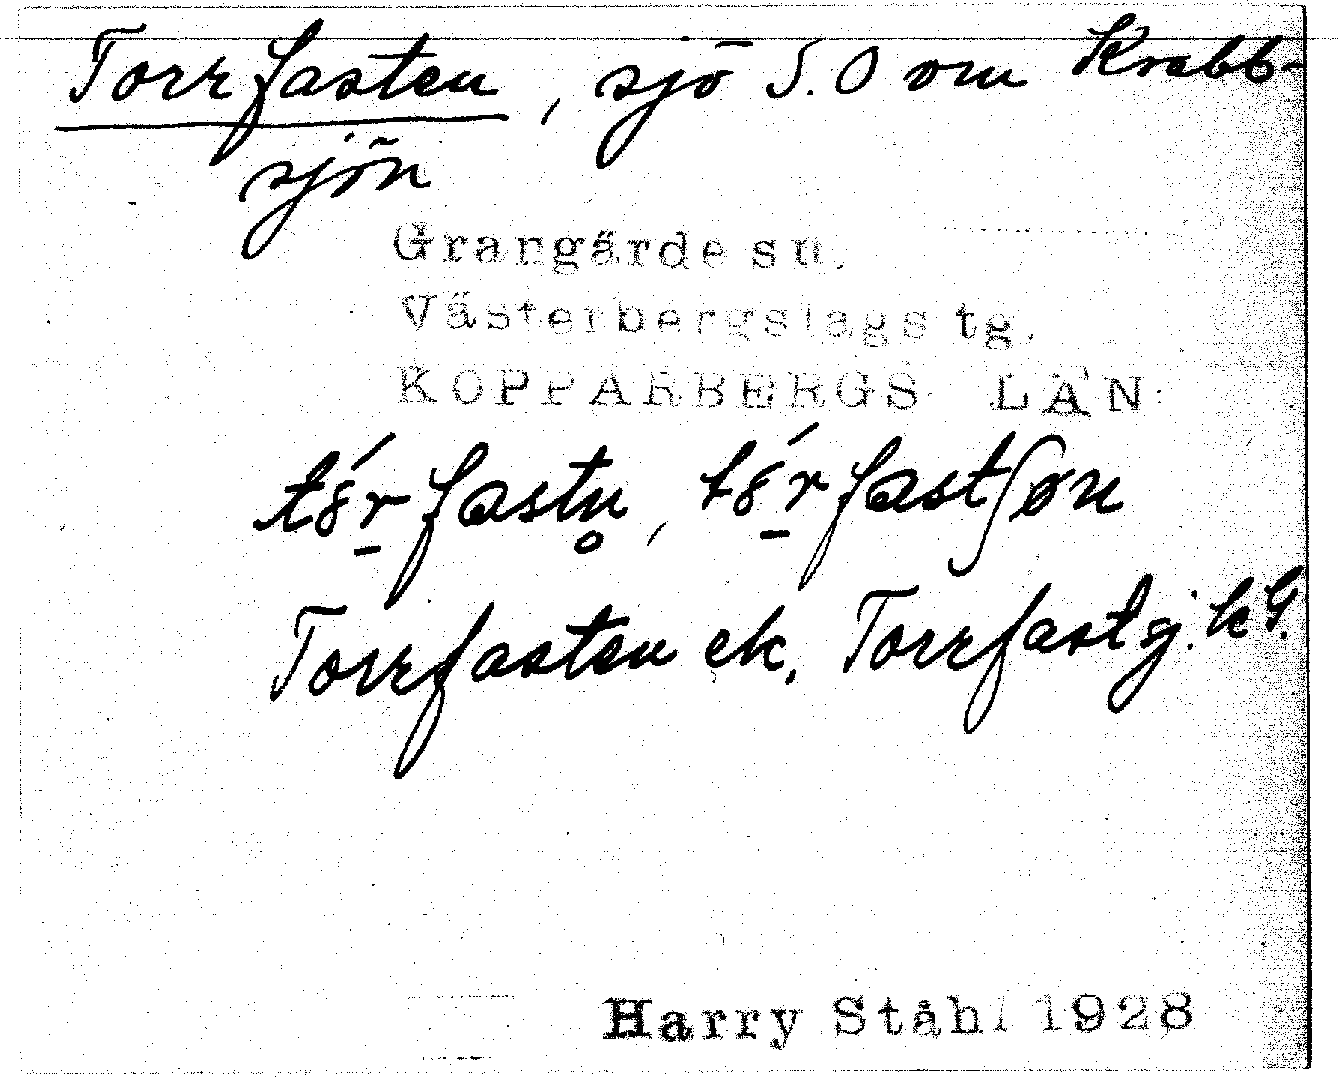 Torrfasten, sjö S.O om Krabb-
sjön
Grangärde sn.
Västerbergslags tg.
KOPPARBERGS LÄN
tó̱rfastn̥, tó̱rfastʃøn
Torrfasten ek. Torrfastsj. kG.
Harry Ståhl 1928